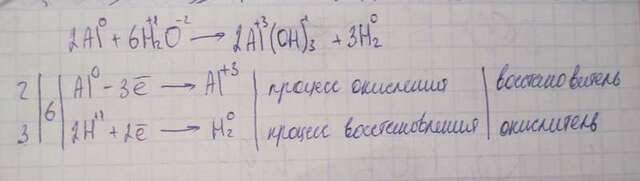 2Al⁰ + 6H₂⁺¹O⁻² → 2Al⁺³(OH)₃⁻¹ + 3H₂⁰
2 | 6 | Al⁰ - 3ē → Al⁺³ | процесс окисления | восстановитель
3 | 2H⁺¹ + 2ē → H₂⁰ | процесс восстановления | окислитель